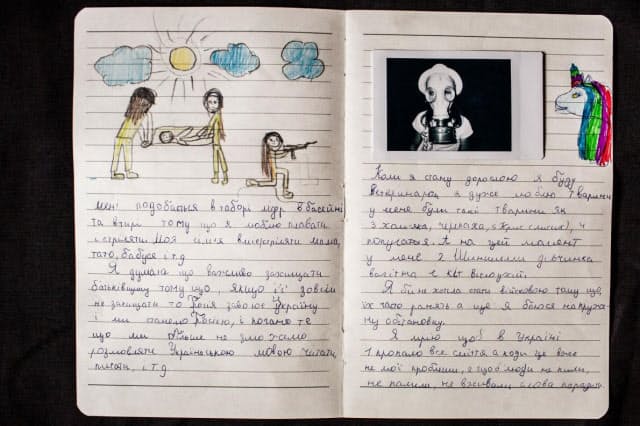 Мені подобаеться в таборі в басейні
та в тирі тому що я люблю плавати
і стріляти. Моя сім'я стріляти мама,
тато, бабуся і т.д
Я думаю що важливо захищати
батьківщину тому що, якщо її зовсім
не захищати то Росія завоює Україну
і ми станемо Росією, і погано те
що ми більше не зможемо
розмовляти Українською мовою читати,
писати, і т.д
Коли я стану дорослою я буду
Ветеринаром я дуже люблю тварин
у мене були такі тварини як
3 хомяка, черепаха, 4
попугая. А на цей момент
у мене 2 Шиншили дівчинка
вагітна і кіт вислоухий.
Я би не хотіла стати військовою тому що,
їх часто ранять а ще я боюся напруже-
ну обстановку.
Я мрію щоб в Україні
1 пропало все сміття а коди це вже
не мої проблеми, 2 щоб люди не пили,
не палили, не вживали слова паразити.